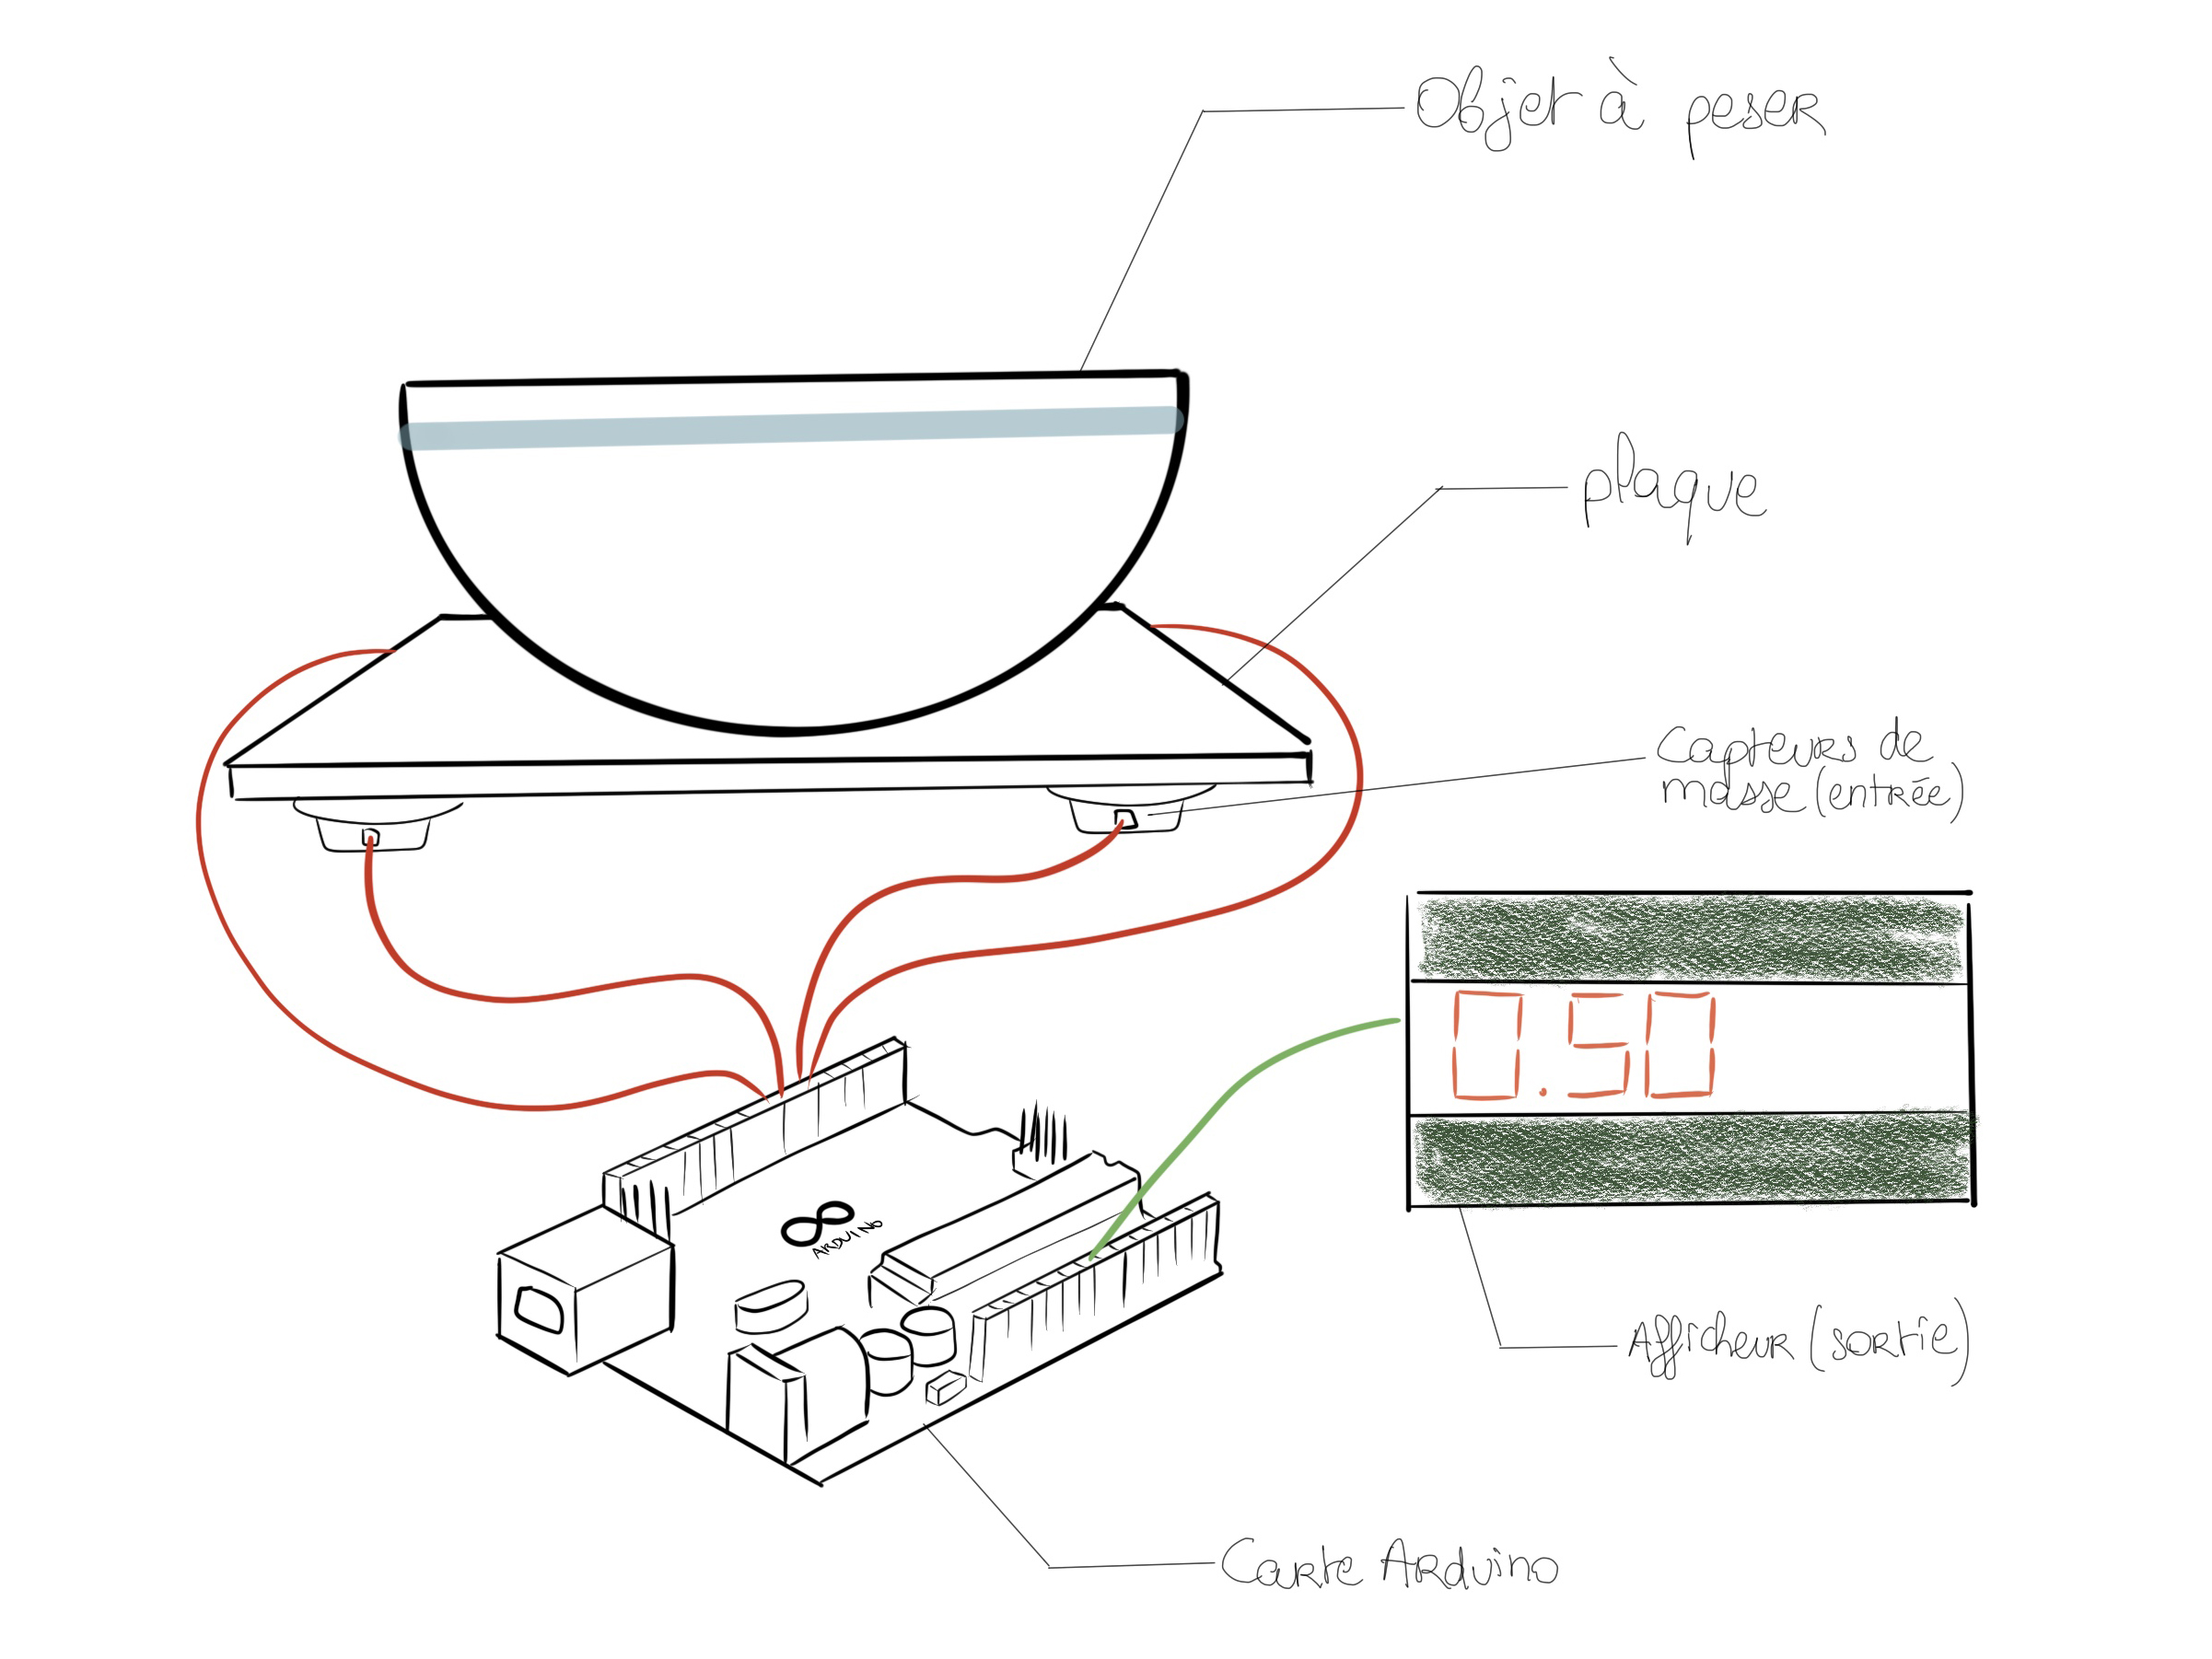 Objet à peser
plaque
Capteurs de
masse (entrée)
0.50
ARDUINO
Afficheur (sortie)
Carte Arduino